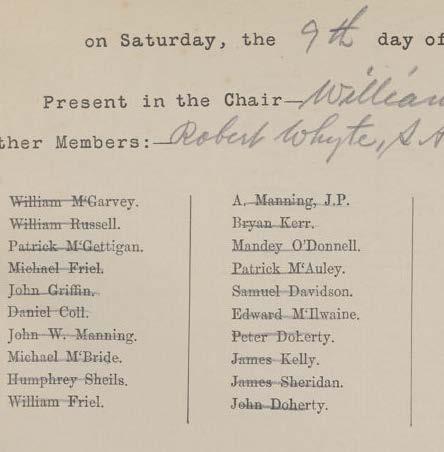 on Saturday, the 9th day of
Present in the Chair—William
ther Members:—Robert Whyte,
William M‘Garvey.
William Russell.
Patrick M‘Gettigan.
Michael Friel.
John Griffin.
Daniel Coll.
John W. Manning.
Michael M‘Bride.
Humphrey Sheils.
William Friel.
A. Manning, J.P.
Bryan Kerr.
Mandey O'Donnell.
Patrick M‘Auley.
Samuel Davidson.
Edward M‘Ilwaine.
Peter Doherty.
James Kelly.
James Sheridan.
John Doherty.